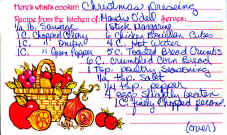 Here's what's cookin: Christmas Dressing
Recipe from the kitchen of Handy O'dell Serves:
1 lb. Sausage 1 Stick Margarine
1 C. Chopped Celery 6 Chicken Bouillon Cubes
1 C. " Onions 4 C. Hot Water
1 C. " Green Pepper 5 C. Toasted Bread Crumbs
6 C. Crumbled Corn Bread
1 Tsp. Poultry Seasoning
1/2 tsp. Salt
1/4 tsp. pepper
4 eggs slightly beaten
1 C finely chopped pecans
(over)